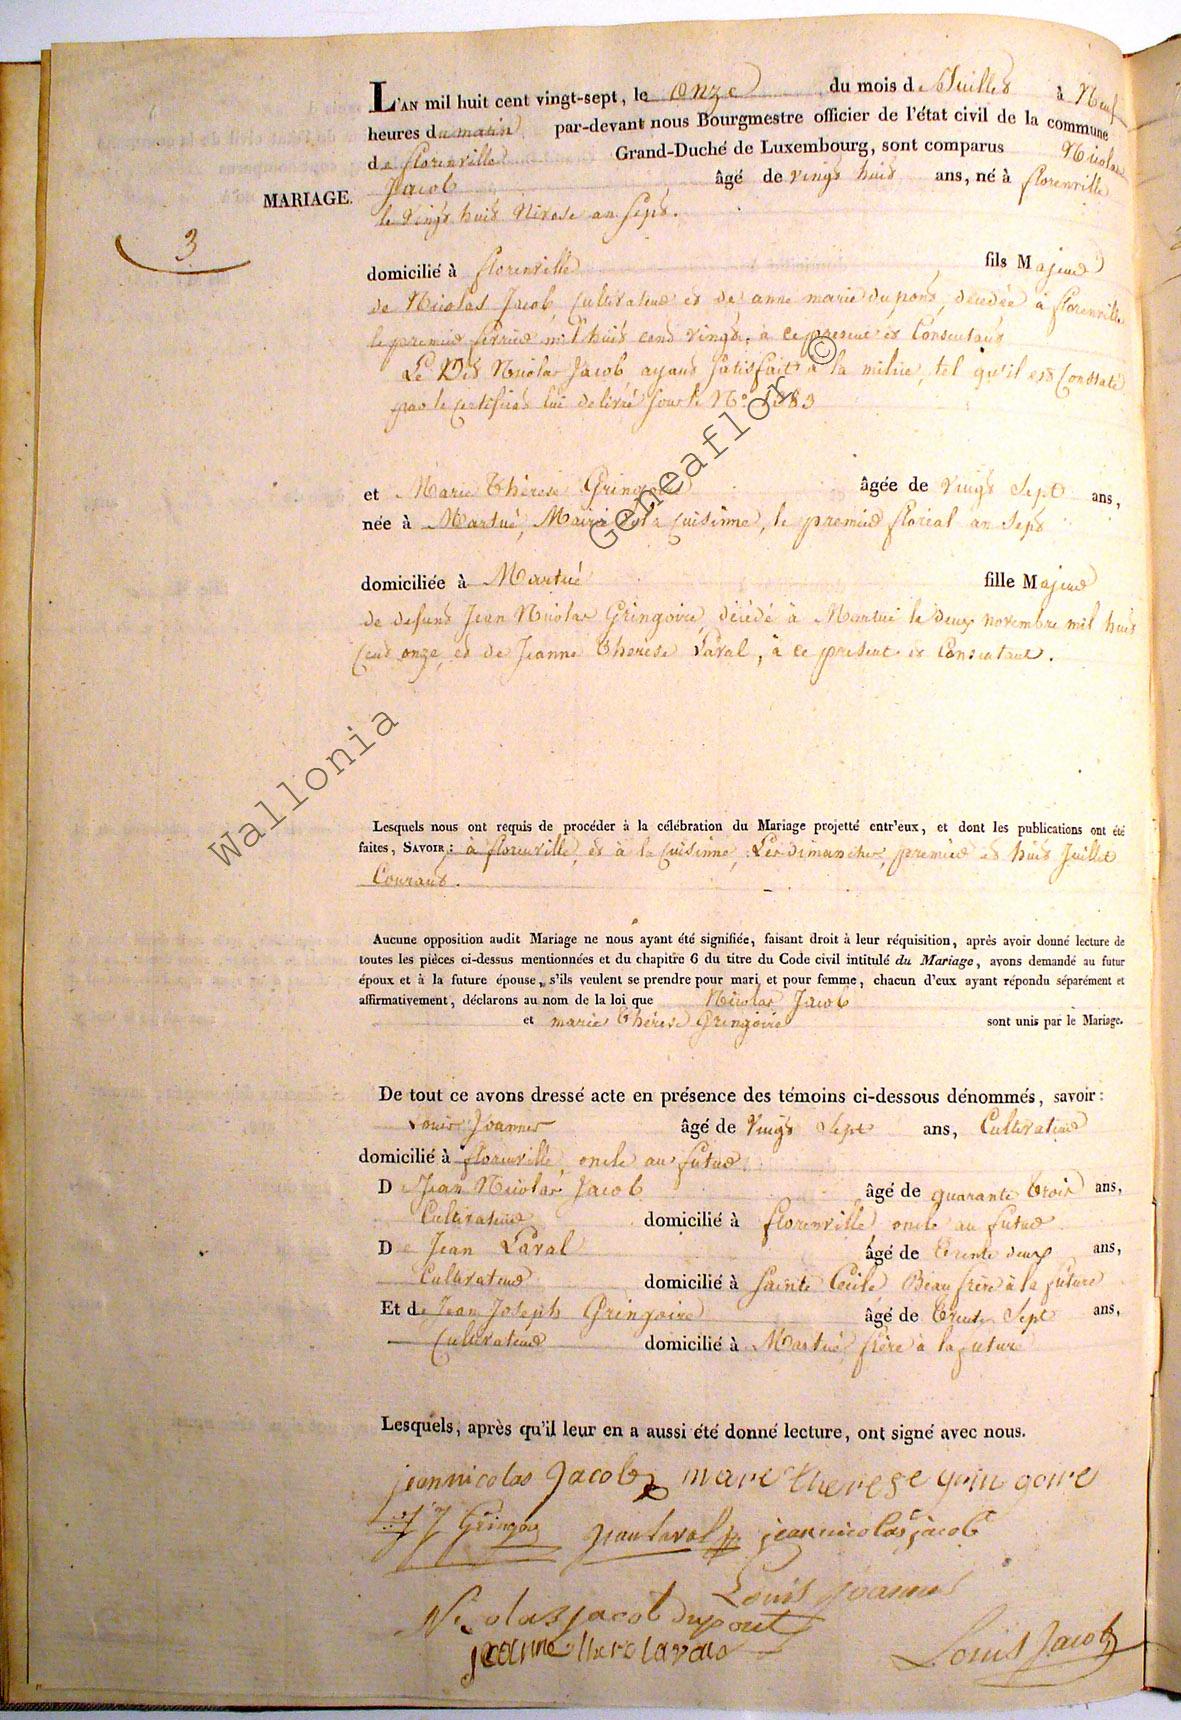 L'AN mil huit cent vingt-sept, le onze du mois de Juillet à Neuf
heures du matin par-devant nous Bourgmestre officier de l'état civil de la commune
de florenville Grand-Duché de Luxembourg, sont comparus Nicolas
Jacob âgé de vingt huit ans, né à florenville
MARIAGE.
le vingt huit Nivose an Sept.
3
domicilié à florenville fils Majeur
de Nicolas Jacob, Cultivateur et de anne marie dupont, décédée à florenville
le premier fevrier mil huit cent vingt, à ce present et Consentant
Le Dit Nicolas Jacob ayant satisfait à la milice, tel qu'il est Constaté
par le certificat lui delivré sous le N° 1883
et Marie Thérese Gringoire âgée de vingt Sept ans,
née à Martué, Mairie de la Cuisinne, le premier floréal an Sept
domiciliée à Martué fille Majeure
de defunt Jean Nicolas Gringoire, décédé à Martué le deux novembre mil huit
Cent onze, et de Jeanne Therèse Laval, à ce present et Consentant.
Lesquels nous ont requis de procéder à la célébration du Mariage projetté entr'eux, et dont les publications ont été
faites, SAVOIR : à florenville et à la Cuisinne, Les dimanches, premier et huit Juillet
Courant.
Aucune opposition audit Mariage ne nous ayant été signifiée, faisant droit à leur réquisition, après avoir donné lecture de
toutes les pièces ci-dessus mentionnées et du chapitre 6 du titre du Code civil intitulé du Mariage, avons demandé au futur
époux et à la future épouse, s'ils veulent se prendre pour mari et pour femme, chacun d'eux ayant répondu séparément et
affirmativement, déclarons au nom de la loi que Nicolas Jacob
et marie thérèse Gringoire sont unis par le Mariage.
De tout ce avons dressé acte en présence des témoins ci-dessous dénommés, savoir :
Louis Joannes âgé de vingt Sept ans, Cultivateur
domicilié à florenville, oncle au futur
De Jean Nicolas Jacob âgé de quarante trois ans,
Cultivateur domicilié à florenville oncle au futur
De Jean Laval âgé de trente deux ans,
Cultivateur domicilié à Sainte Cécile Beau frère à la future
Et de Jean Joseph Gringoire âgé de trente Sept ans,
Cultivateur domicilié à Martué, frère à la future
Lesquels, après qu'il leur en a aussi été donné lecture, ont signé avec nous.
jeannicolas Jacob mare therese gringoire
J J Gringoire jean laval jeannicolas jacob
Louis Joannes
Nicolas jacob dupont
jeanne Louis Jacob
Wallonia Geneaflor ©